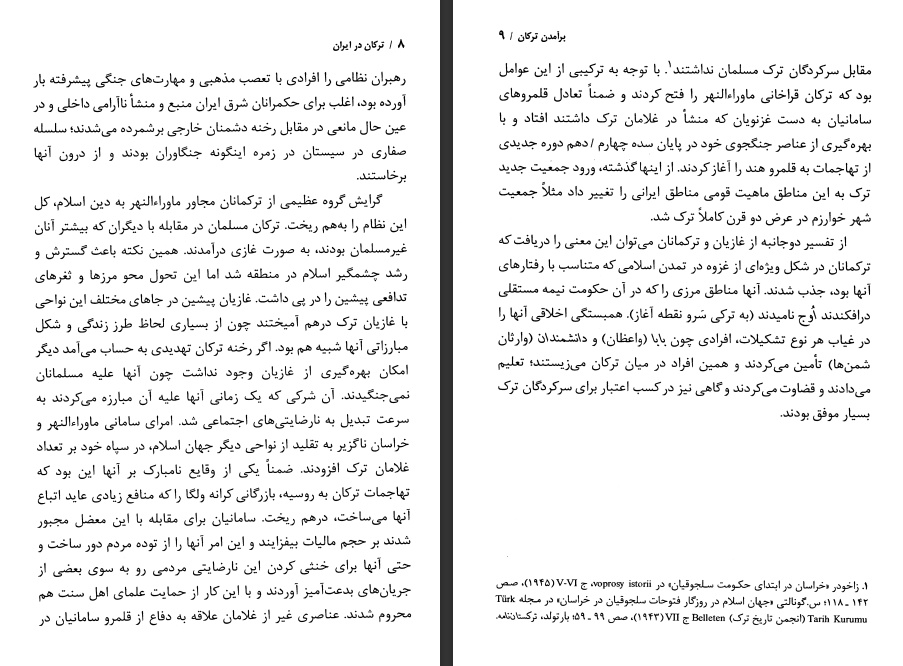 ۸ / ترکان در ایران
رهبران نظامی را افرادی با تعصب مذهبی و مهارت‌های جنگی پیشرفته بار
آورده بود، اغلب برای حکمرانان شرق ایران منبع و منشأ ناآرامی داخلی و در
عین حال مانعی در مقابل رخنه دشمنان خارجی برشمرده می‌شدند؛ سلسله
صفاری در سیستان در زمره اینگونه جنگاوران بودند و از درون آنها
برخاستند.
گرایش گروه عظیمی از ترکمانان مجاور ماوراءالنهر به دین اسلام، کل
این نظام را به‌هم ریخت. ترکان مسلمان در مقابله با دیگران که بیشتر آنان
غیرمسلمان بودند، به صورت غازی درآمدند. همین نکته باعث گسترش و
رشد چشمگیر اسلام در منطقه شد اما این تحول محو مرزها و ثغرهای
تدافعی پیشین را در پی داشت. غازیان پیشین در جاهای مختلف این نواحی
با غازیان ترک درهم آمیختند چون از بسیاری لحاظ طرز زندگی و شکل
مبارزاتی آنها شبیه هم بود. اگر رخنه ترکان تهدیدی به حساب می‌آمد دیگر
امکان بهره‌گیری از غازیان وجود نداشت چون آنها علیه مسلمانان
نمی‌جنگیدند. آن شرکی که یک زمانی آنها علیه آن مبارزه می‌کردند به
سرعت تبدیل به نارضایتی‌های اجتماعی شد. امرای سامانی ماوراءالنهر و
خراسان ناگزیر به تقلید از نواحی دیگر جهان اسلام، در سپاه خود بر تعداد
غلامان ترک افزودند. ضمناً یکی از وقایع نامبارک بر آنها این بود که
تهاجمات ترکان به روسیه، بازرگانی کرانه ولگا را که منافع زیادی عاید اتباع
آنها می‌ساخت، درهم ریخت. سامانیان برای مقابله با این معضل مجبور
شدند بر حجم مالیات بیفزایند و این امر آنها را از توده مردم دور ساخت و
حتی آنها برای خنثی کردن این نارضایتی مردمی رو به سوی بعضی از
جریان‌های بدعت‌آمیز آوردند و با این کار از حمایت علمای اهل سنت هم
محروم شدند. عناصری غیر از غلامان علاقه به دفاع از قلمرو سامانیان در
برآمدن ترکان / ۹
مقابل سرکردگان ترک مسلمان نداشتند۱. با توجه به ترکیبی از این عوامل
بود که ترکان قراخانی ماوراءالنهر را فتح کردند و ضمناً تعادل قلمروهای
سامانیان به دست غزنویان که منشأ در غلامان ترک داشتند افتاد و با
بهره‌گیری از عناصر جنگجوی خود در پایان سده چهارم / دهم دوره جدیدی
از تهاجمات به قلمرو هند را آغاز کردند. از اینها گذشته، ورود جمعیت جدید
ترک به این مناطق ماهیت قومی مناطق ایرانی را تغییر داد مثلاً جمعیت
شهر خوارزم در عرض دو قرن کاملاً ترک شد.
از تفسیر دوجانبه از غازیان و ترکمانان می‌توان این معنی را دریافت که
ترکمانان در شکل ویژه‌ای از غزوه در تمدن اسلامی که متناسب با رفتارهای
آنها بود، جذب شدند. آنها مناطق مرزی را که در آن حکومت نیمه مستقلی
درافکندند اُوج نامیدند (به ترکی سَرو نقطه آغاز). همبستگی اخلاقی آنها را
در غیاب هر نوع تشکیلات، افرادی چون بابا (واعظان) و دانشمندان (وارثان
شمن‌ها) تأمین می‌کردند و همین افراد در میان ترکان می‌زیستند؛ تعلیم
می‌دادند و قضاوت می‌کردند و گاهی نیز در کسب اعتبار برای سرکردگان ترک
بسیار موفق بودند.
۱. زاخودر «خراسان در ابتدای حکومت سلجوقیان» در voprosy istorii، ج V-VI (۱۹۴۵)، صص
۱۴۲ ـ ۱۱۸؛ س.گونالتی «جهان اسلام در روزگار فتوحات سلجوقیان در خراسان» در مجله Türk
Tarih Kurumu (انجمن تاریخ ترک) Belleten ج VII (۱۹۴۳)، صص ۹۹ ـ ۵۹؛ بارتولد، ترکستان‌نامه.